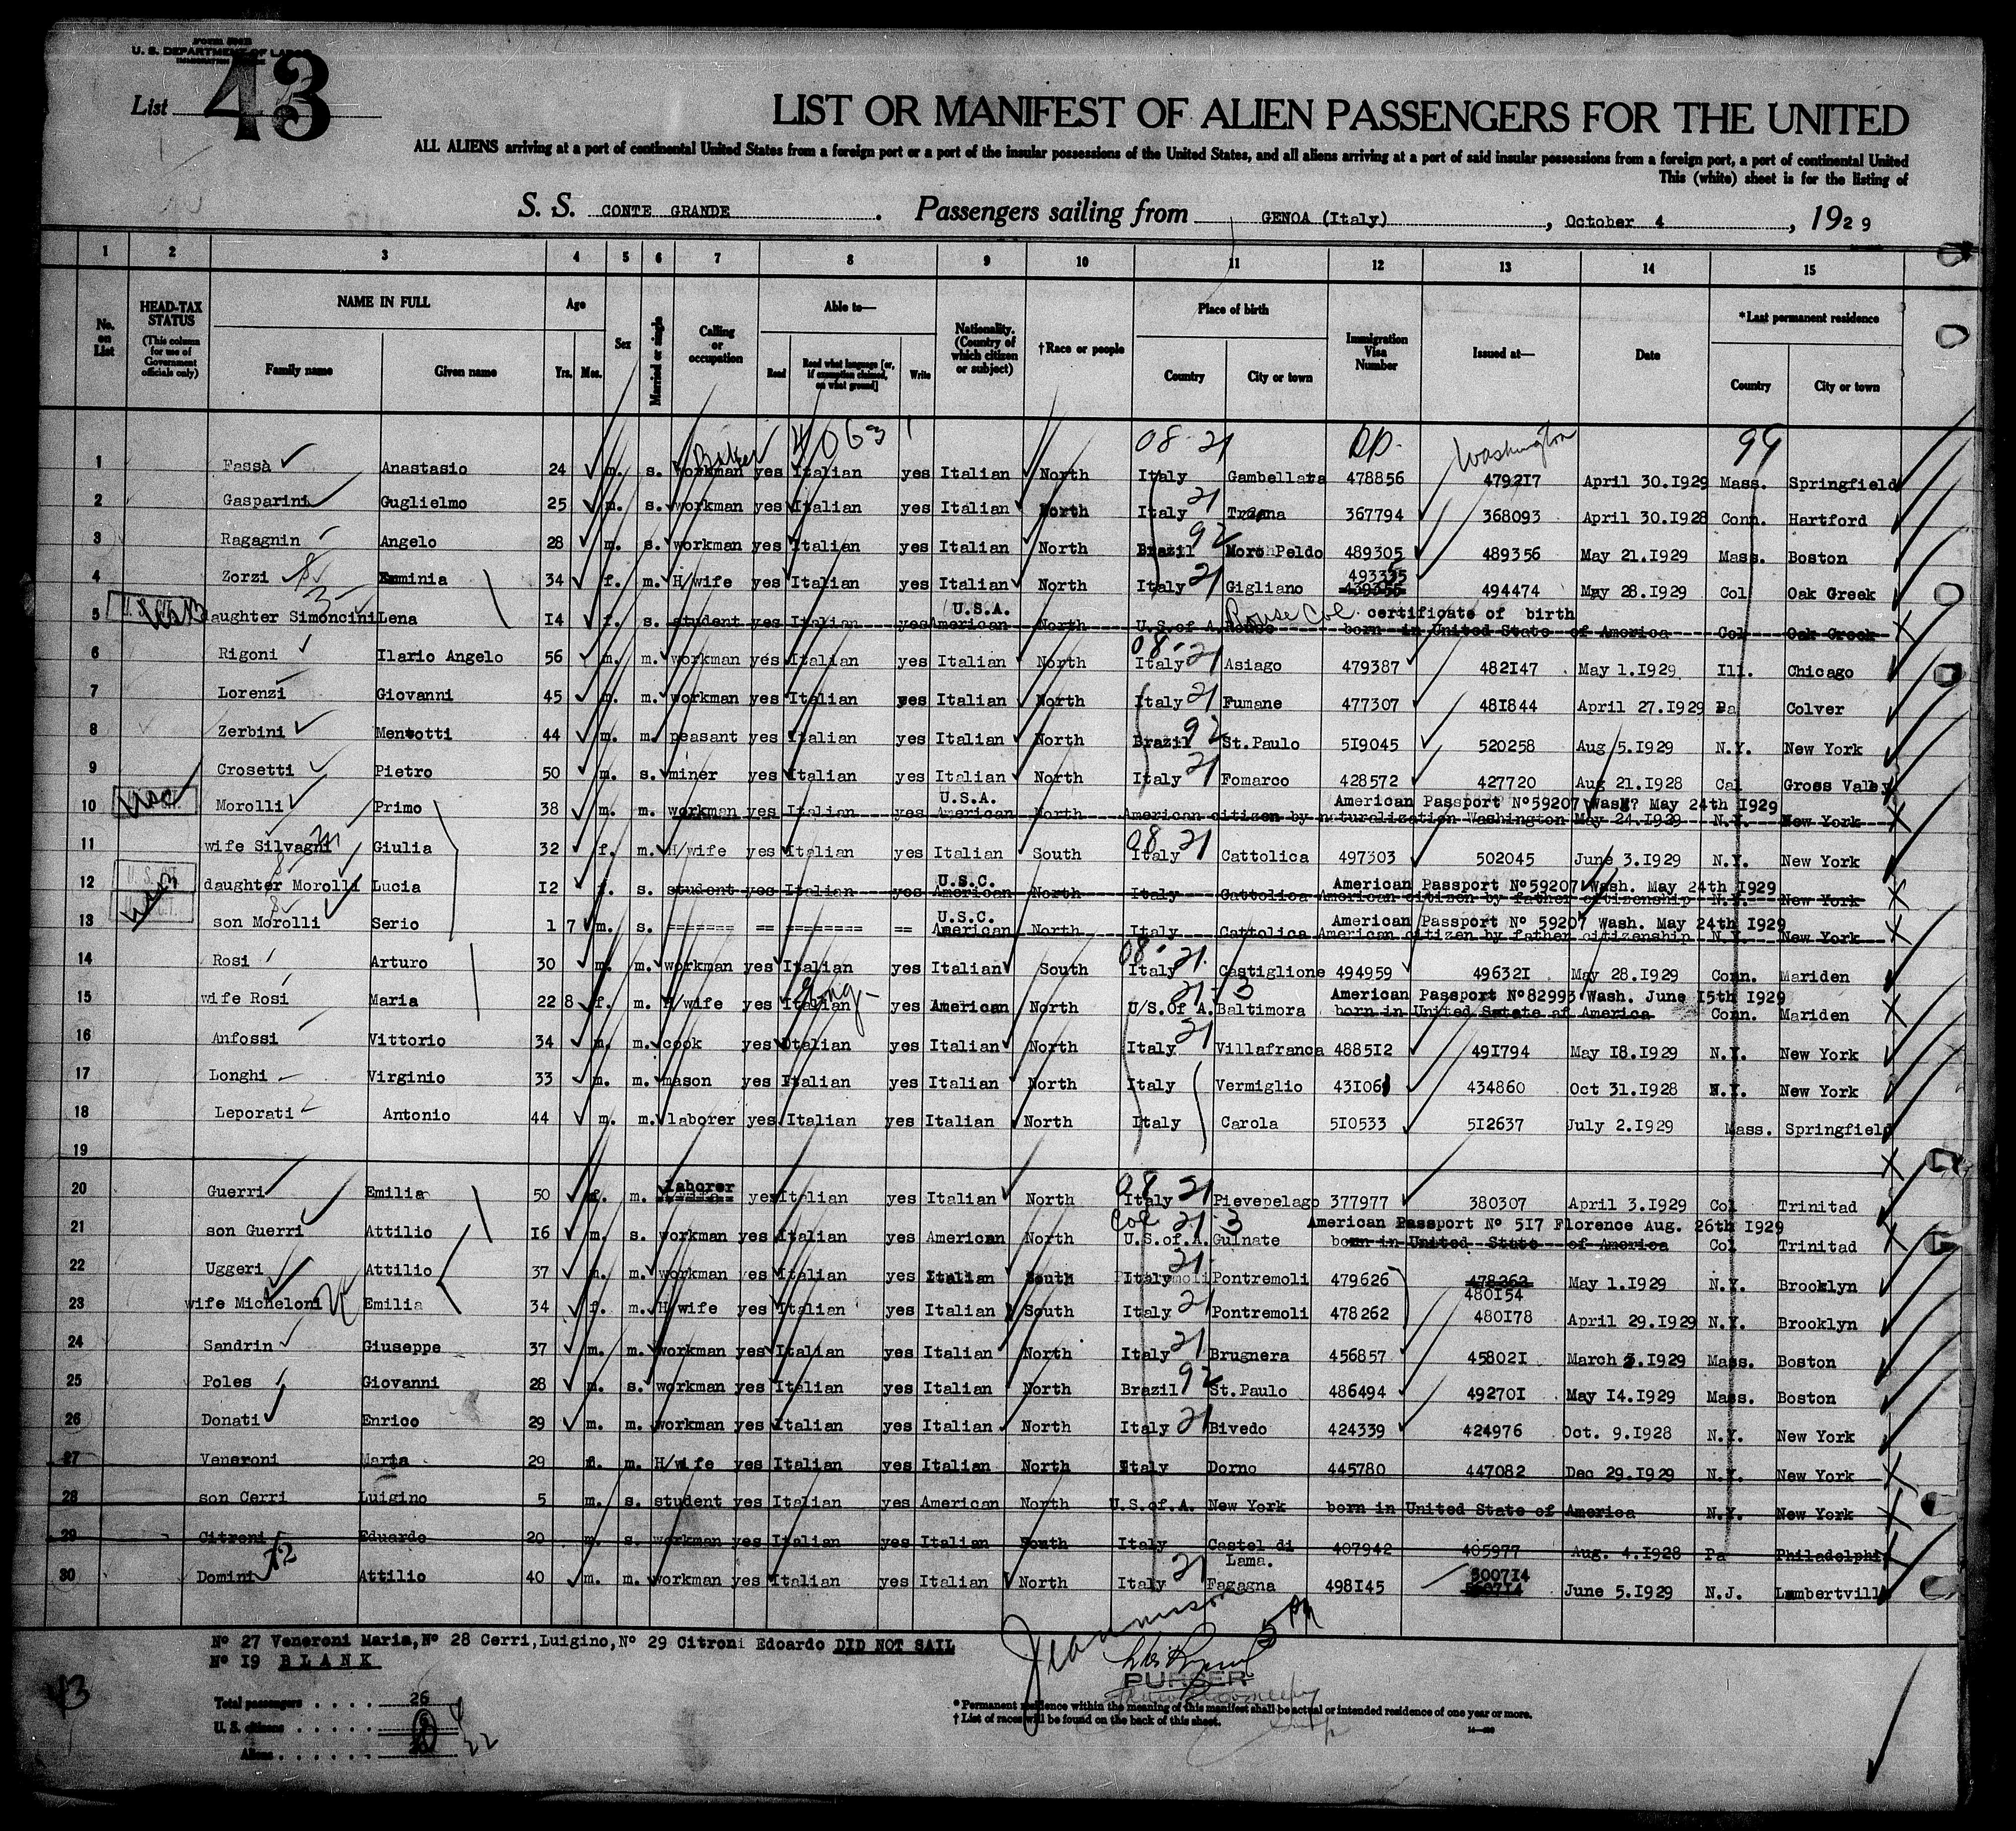 FORM 500B
U. S. DEPARTMENT OF LABOR
List 43
LIST OR MANIFEST OF ALIEN PASSENGERS FOR THE UNITED
ALL ALIENS arriving at a port of continental United States from a foreign port or a port of the insular possessions of the United States, and all aliens arriving at a port of said insular possessions from a foreign port, a port of continental United
This (white) sheet is for the listing of
S. S. CONTE GRANDE. Passengers sailing from GENOA (Italy), October 4, 1929
1 2 3 4 5 6 7 8 9 10 11 12 13 14 15
No. on List HEAD-TAX STATUS (This column for use of Government officials only) NAME IN FULL Family name Given name Age Yrs. Mos. Sex Married or single Calling or occupation Able to— Read Read what language [or, if exemption claimed, on what ground] Write Nationality. (Country of which citizen or subject) †Race or people Place of birth Country City or town Immigration Visa Number Issued at— Date *Last permanent residence Country City or town
Baker 4063 08-21 Washington 99
1 Fassà Anastasio 24 m. s. workman yes Italian yes Italian North Italy Gambellara 478856 479217 April 30.1929 Mass. Springfield
2 Gasparini Guglielmo 25 m. s. workman yes Italian yes Italian North Italy 21 367794 368093 April 30.1928 Conn. Hartford
3 Ragagnin Angelo 28 m. s. workman yes Italian yes Italian North Brazil 92 489305 489356 May 21.1929 Mass. Boston
4 Zorzi Erminia 34 f. m. H/wife yes Italian yes Italian North Italy 21 Gigliano 493335 439355 494474 May 28.1929 Col Oak Greek
5 daughter Simoncini Lena 14 f. s. student yes Italian yes U.S.A. American North U.S.of A. Rouse Col. certificate of birth born in United State of America Col Oak Creek
6 Rigoni Ilario Angelo 56 m. m. workman yes Italian yes Italian North 08- Italy 21 Asiago 479387 482147 May 1.1929 Ill. Chicago
7 Lorenzi Giovanni 45 m. m. workman yes Italian yes Italian North Italy 21 Fumane 477307 481844 April 27.1929 Pa Colver
8 Zerbini Menotti 44 m. m. peasant yes Italian yes Italian North Brazil 92 St.Paulo 519045 520258 Aug 5.1929 N.Y. New York
9 Crosetti Pietro 50 m. s. miner yes Italian yes Italian North Italy 21 Fomarco 428572 427720 Aug 21.1928 Cal Gross Valey
10 Morolli Primo 38 m. m. workman yes Italian yes U.S.A. American North American Passport Nº59207 Wash? May 24th 1929 American citizen by naturalization Washington May 24.1929 N.Y. New York
11 wife Silvagni Giulia 32 f. m. H/wife yes Italian yes Italian South 08 Italy 21 Cattolica 497303 502045 June 3.1929 N.Y. New York
12 daughter Morolli Lucia 12 f. s. student yes Italian yes U.S.C. American North Italy Cattolica American Passport Nº59207 Wash. May 24th 1929 American citizen by father citizenship N.Y. New York
13 son Morolli Serio 1 7 m. s. ======= == ======== == U.S.C. American North Italy Cattolica American Passport Nº 59207 Wash. May 24th 1929 American citizen by father citizenship N.Y. New York
14 Rosi Arturo 30 m. m. workman yes Italian yes Italian South 08- Italy 21. Castiglione 494959 496321 May 28.1929 Conn. Mariden
15 wife Rosi Maria 22 8 f. m. H/wife yes Italian Eng- yes American North U/S.Of A. 21-3 Baltimora American Passport Nº82993 Wash. June 15th 1929 born in United Satate af America Conn. Mariden
16 Anfossi Vittorio 34 m. m. cook yes Italian yes Italian North Italy 21 Villafranca 488512 491794 May 18.1929 N.Y. New York
17 Longhi Virginio 33 m. m. mason yes Italian yes Italian North Italy Vermiglio 431061 434860 Oct 31.1928 N.Y. New York
18 Leporati Antonio 44 m. m. laborer yes Italian yes Italian North Italy Carola 510533 512637 July 2.1929 Mass. Springfield
19
20 Guerri Emilia 50 f. m. laborer yes Italian yes Italian North 08 Italy 21 Pievepelago 377977 380307 April 3.1929 Col Trinitad
21 son Guerri Attilio 16 m. s. workman yes Italian yes American North Col 21-3 U.S.of.A. Gulnate American Passport Nº 517 Florence Aug. 26th 1929 born in United State of America Col Trinitad
22 Uggeri Attilio 37 m. m. workman yes Italian yes Italian South Italy 21 Pontremoli 479626 478262 480154 May 1.1929 N.Y. Brooklyn
23 wife Micheloni Emilia 34 f. m. H/wife yes Italian yes Italian South Italy 21 Pontremoli 478262 480178 April 29.1929 N.Y. Brooklyn
24 Sandrin Giuseppe 37 m. m. workman yes Italian yes Italian North Italy 21 Brugnera 456857 458021 March 5.1929 Mass. Boston
25 Poles Giovanni 28 m. s. workman yes Italian yes Italian North Brazil 92 St.Paulo 486494 492701 May 14.1929 Mass. Boston
26 Donati Enrico 29 m. m. workman yes Italian yes Italian North Italy 21 Bivedo 424339 424976 Oct. 9.1928 N.Y. New York
27 Veneroni Maria 29 f. m. H/wife yes Italian yes Italian North Italy Dorno 445780 447082 Dec 29.1929 N.Y. New York
28 son Cerri Luigino 5 m. s. student yes Italian yes American North U.S.of.A. New York born in United State of America N.Y. New York
29 Citroni Eduardo 20 m. s. workman yes Italian yes Italian South Italy Castel di Lama. 407942 405977 Aug. 4.1928 Pa Philadelphi
30 Domini Attilio 40 m. m. workman yes Italian yes Italian North Italy 21 Fagagna 498145 500714 June 5.1929 N.J. Lambertvill
Nº 27 Veneroni Maria, Nº 28 Cerri, Luigino, Nº 29 Citroni Edoardo DID NOT SAIL
Nº 19 BLANK
43
PURSER
Total passengers . . . . 26
U. S. citizens . . . . .
Aliens . . . . . . 22
* Permanent residence within the meaning of this manifest shall be actual or intended residence of one year or more.
† List of races will be found on the back of this sheet.